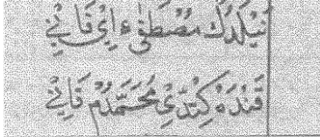 نَيْلَدُكْ مُصْطَفٰىءِ اِيْ فَانِيْ
قَنْدَهْ كِتْدِيْ مُحَمَّدُمْ قَانِيْ